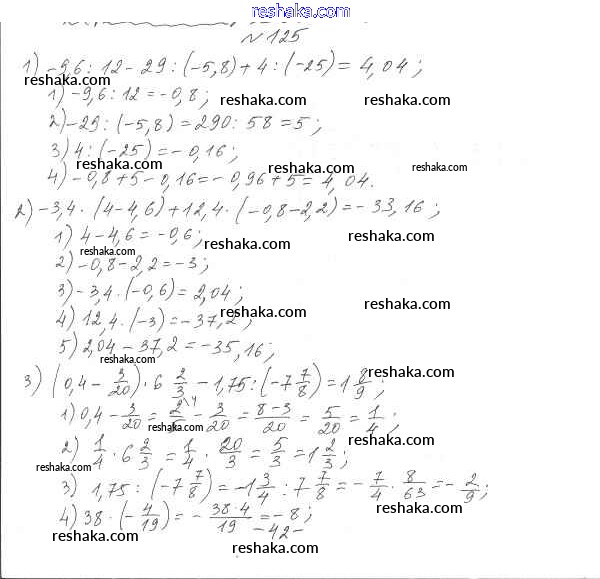 www.reshaka.com
№125
1) -9,6 : 12 - 29 : (-5,8) + 4 : (-25) = 4,04;
reshaka.com
1) -9,6 : 12 = -0,8;
reshaka.com
reshaka.com
2) -29 : (-5,8) = 290 : 58 = 5;
reshaka.com
3) 4 : (-25) = -0,16;
reshaka.com
reshaka.com
reshaka.com
4) -0,8 + 5 - 0,16 = -0,96 + 5 = 4,04.
reshaka.com
2) -3,4 · (4 - 4,6) + 12,4 · (-0,8 - 2,2) = -33,16;
1) 4 - 4,6 = -0,6;
reshaka.com
reshaka.com
reshaka.com
2) -0,8 - 2,2 = -3;
3) -3,4 · (-0,6) = 2,04;
reshaka.com
4) 12,4 · (-3) = -37,2;
reshaka.com
reshaka.com
5) 2,04 - 37,2 = -35,16;
reshaka.com
3) (0,4 - 3/20) · 6 2/3 - 1,75 : (-7 7/8) = 1 8/9;
reshaka.com
reshaka.com
1) 0,4 - 3/20 = 2/5 \4 - 3/20 = (8-3)/20 = 5/20 = 1/4;
reshaka.com
2) 1/4 · 6 2/3 = 1/4 · 20/3 = 5/3 = 1 2/3;
reshaka.com
reshaka.com
3) 1,75 : (-7 7/8) = -1 3/4 : 7 7/8 = -7/4 · 8/63 = -2/9;
reshaka.com
reshaka.com
4) 38 · (-4/19) = -(38·4)/19 = -8;
reshaka.com
-42-
reshaka.com